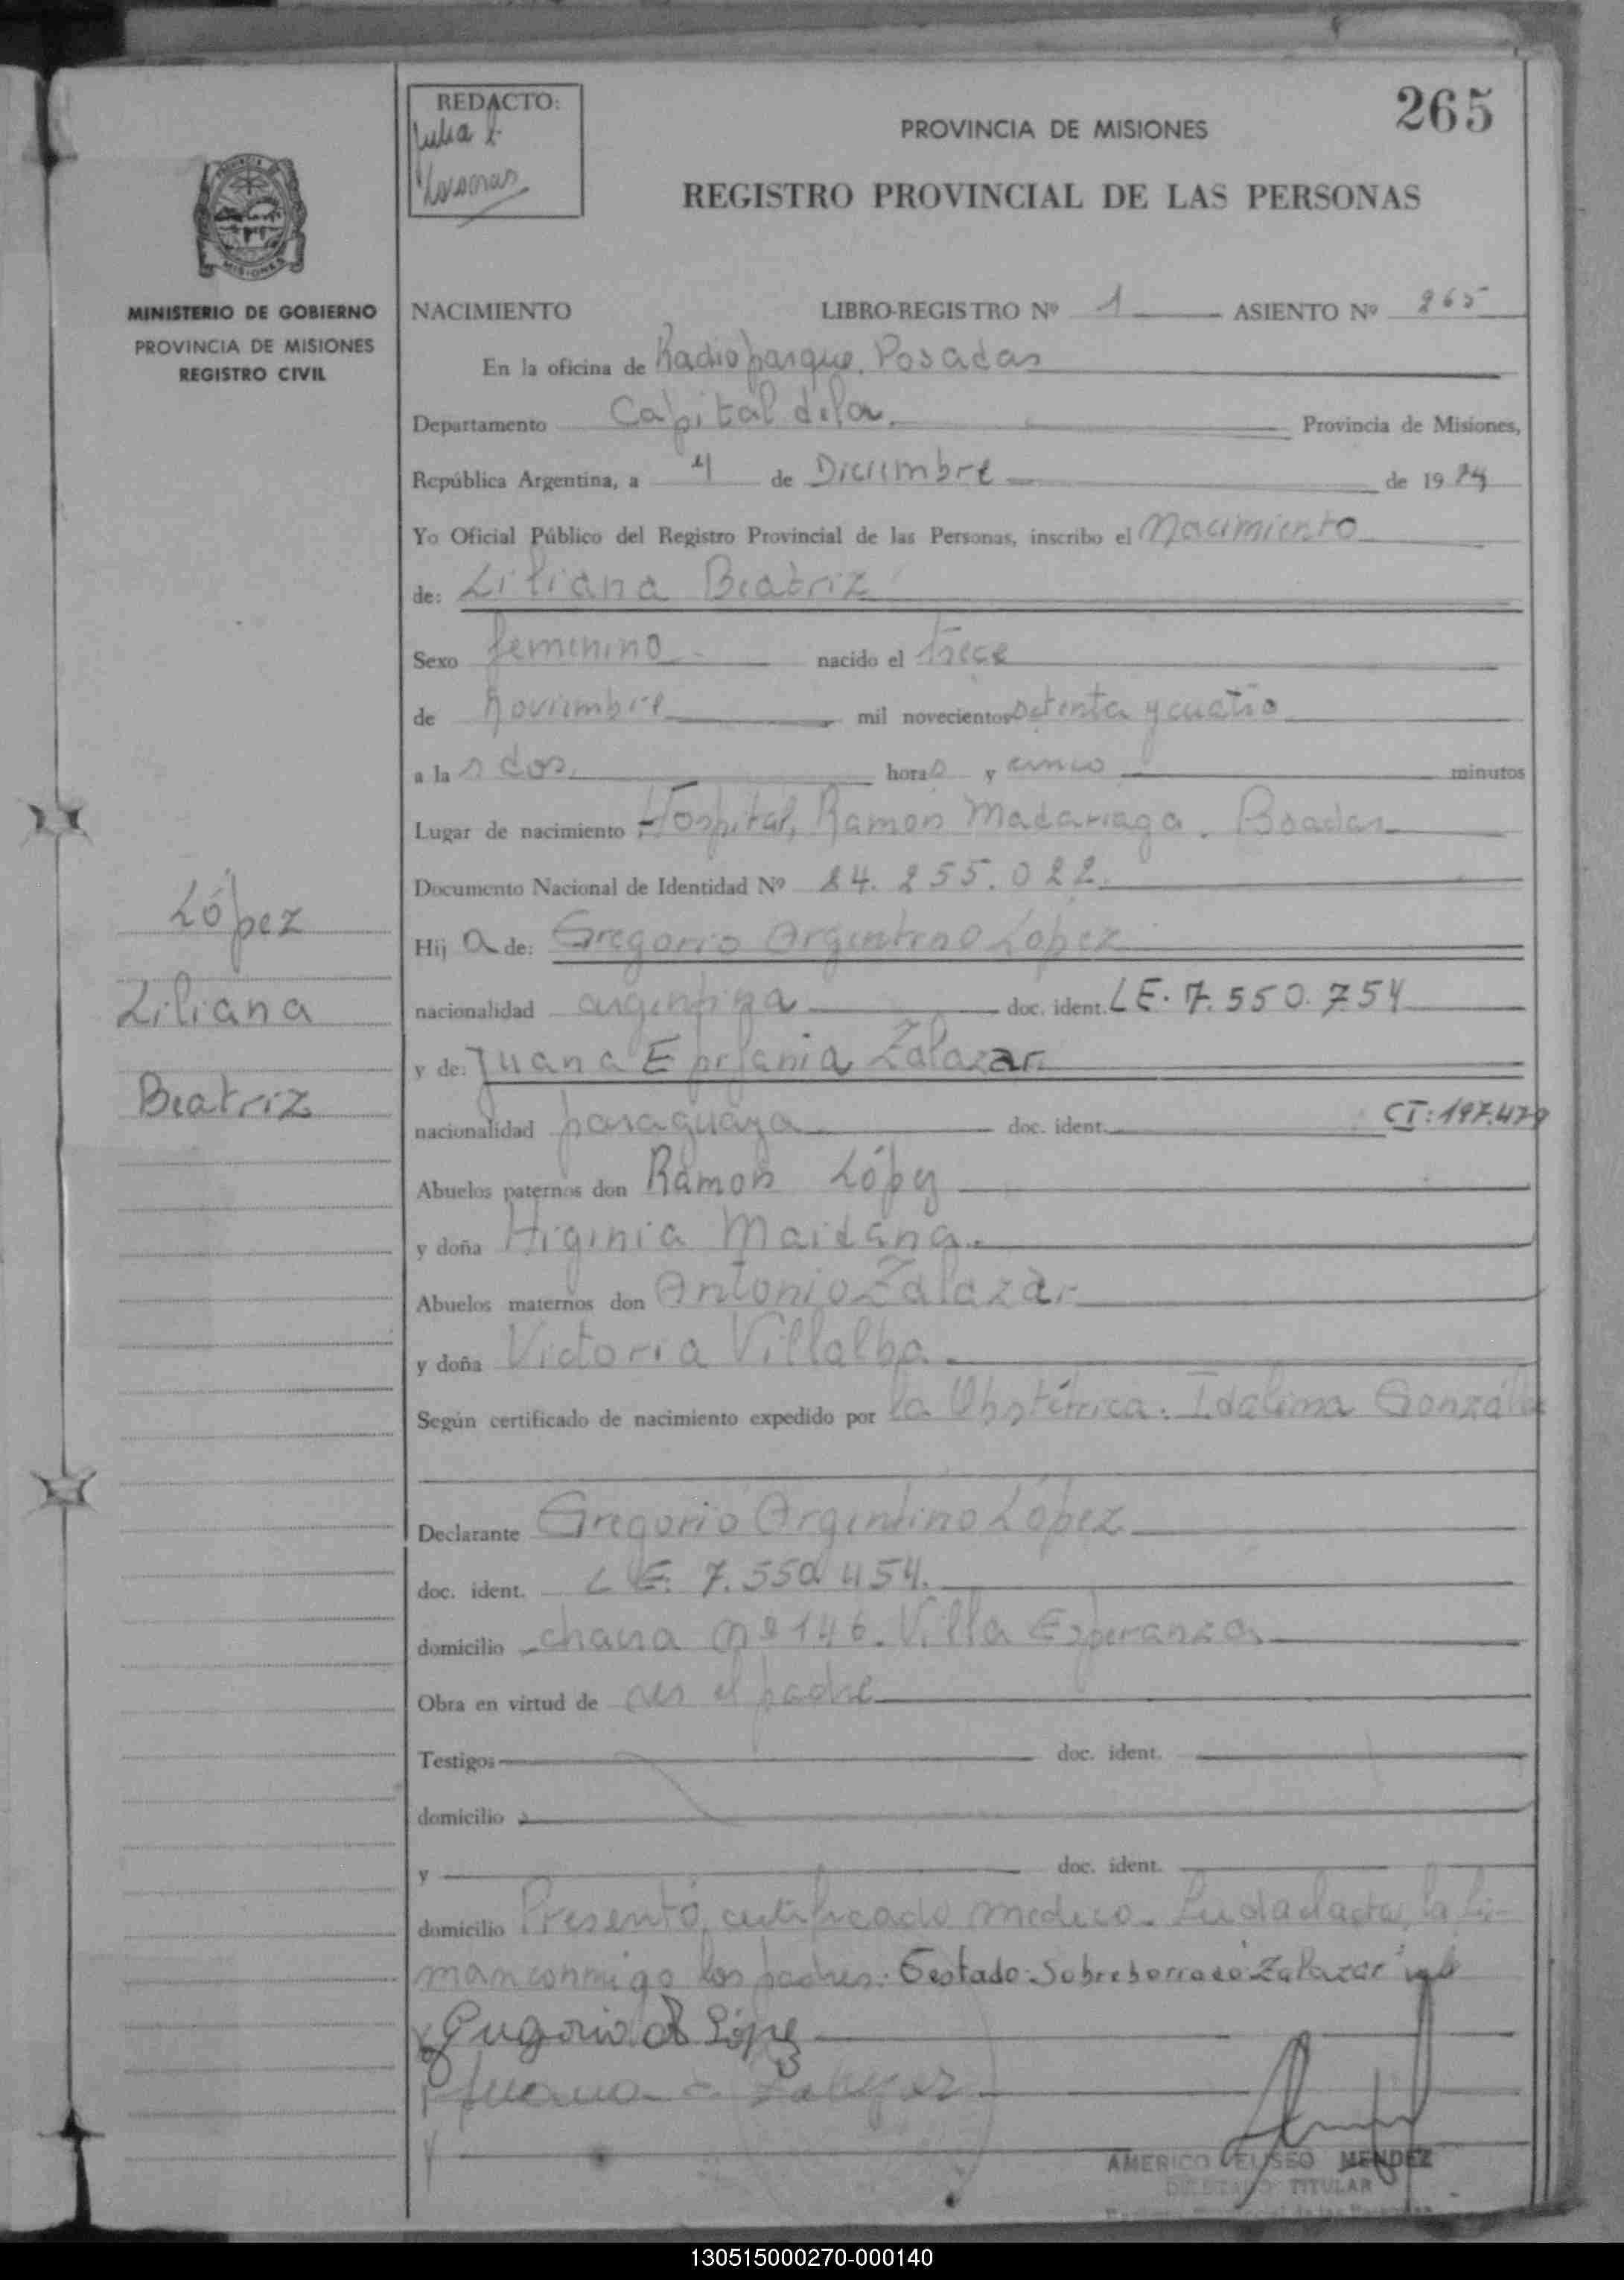 265
REDACTO:
PROVINCIA DE MISIONES
REGISTRO PROVINCIAL DE LAS PERSONAS
MISIONES
MINISTERIO DE GOBIERNO
PROVINCIA DE MISIONES
REGISTRO CIVIL
NACIMIENTO LIBRO-REGISTRO Nº 1 ASIENTO Nº 265
En la oficina de Radioparque. Posadas
Departamento Capital de la. Provincia de Misiones,
República Argentina, a 4 de Diciembre de 1974
Yo Oficial Público del Registro Provincial de las Personas, inscribo el Nacimiento
de: Liliana Beatriz
Sexo femenino nacido el trece
de Noviembre mil novecientos setenta y cuatro
a las dos. horas y cinco minutos
Lugar de nacimiento Hospital, Ramón Madariaga. Posadas
Documento Nacional de Identidad Nº 24.255.022.
Hija de: Gregorio Argentino López
nacionalidad argentina doc. ident. LE. 7.550.754
y de: Juana Epifania Zalazar
nacionalidad paraguaya doc. ident. CI: 197.479
Abuelos paternos don Ramón López
y doña Higinia Maidana.
Abuelos maternos don Antonio Zalazar
y doña Victoria Villalba
Según certificado de nacimiento expedido por la Obstétrica. Idalina González
Declarante Gregorio Argentino López
doc. ident. LE. 7.550.454.
domicilio chacra nº 146. Villa Esperanza
Obra en virtud de ser el padre
Testigos doc. ident.
domicilio
y doc. ident.
domicilio Presentó certificado medico. Leída el acta, la fir-
man conmigo los padres. Sobreborrado "Zalazar" vale
Gregorio A López
Juana E. Zalazar
AMERICO ELISEO MENDEZ
DELEGADO TITULAR
López
Liliana
Beatriz
130515000270-000140